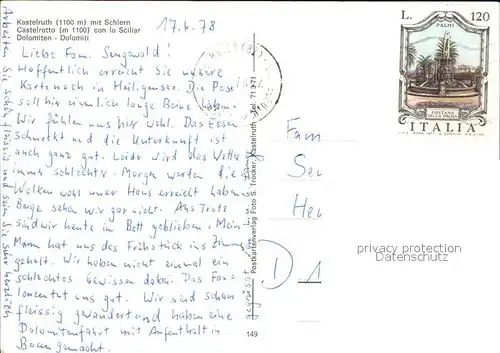 Kastelruth (1100 m) mit Schlern
Castelrotto (m 1100) con lo Sciliar
Dolomiten - Dolomiti
17.6.78
Liebe Fam. Sengewald!
Hoffentlich erreicht Sie unsere
Karte noch in Heiligensee. Die Post
soll hier ziemlich lange Beine haben.
Wir fühlen uns hier wohl. Das Essen
schmeckt und die Unterkunft ist
auch ganz gut. Leider wird das Wetter
immer schlechter. Morgen werden die
Wolken wohl unser Haus erreicht haben
Berge sehen wir gar nicht. Aus Trotz
sind wir heute in Bett geblieben. Mein
Mann hat uns das Frühstück ins Zimmer
geholt. Wir haben nicht einmal ein
schlechtes Gewissen dabei. Das
tut uns gut. Wir sind schon
fleissig gewandert und haben eine
Dolomitenfahrt mit Aufenthalt in
Bozen gemacht.
Arbeiten Sie schön und seien Sie sehr herzlich
gegrüsst von
Postkartenverlag Foto S. Trocker, Kastelruth - Tel. 71 3 71
149
L. 120
PALMI
FONTANA
DELLA PALMA
ITALIA
Fam
Se
He
D 1
privacy protection
Datenschutz